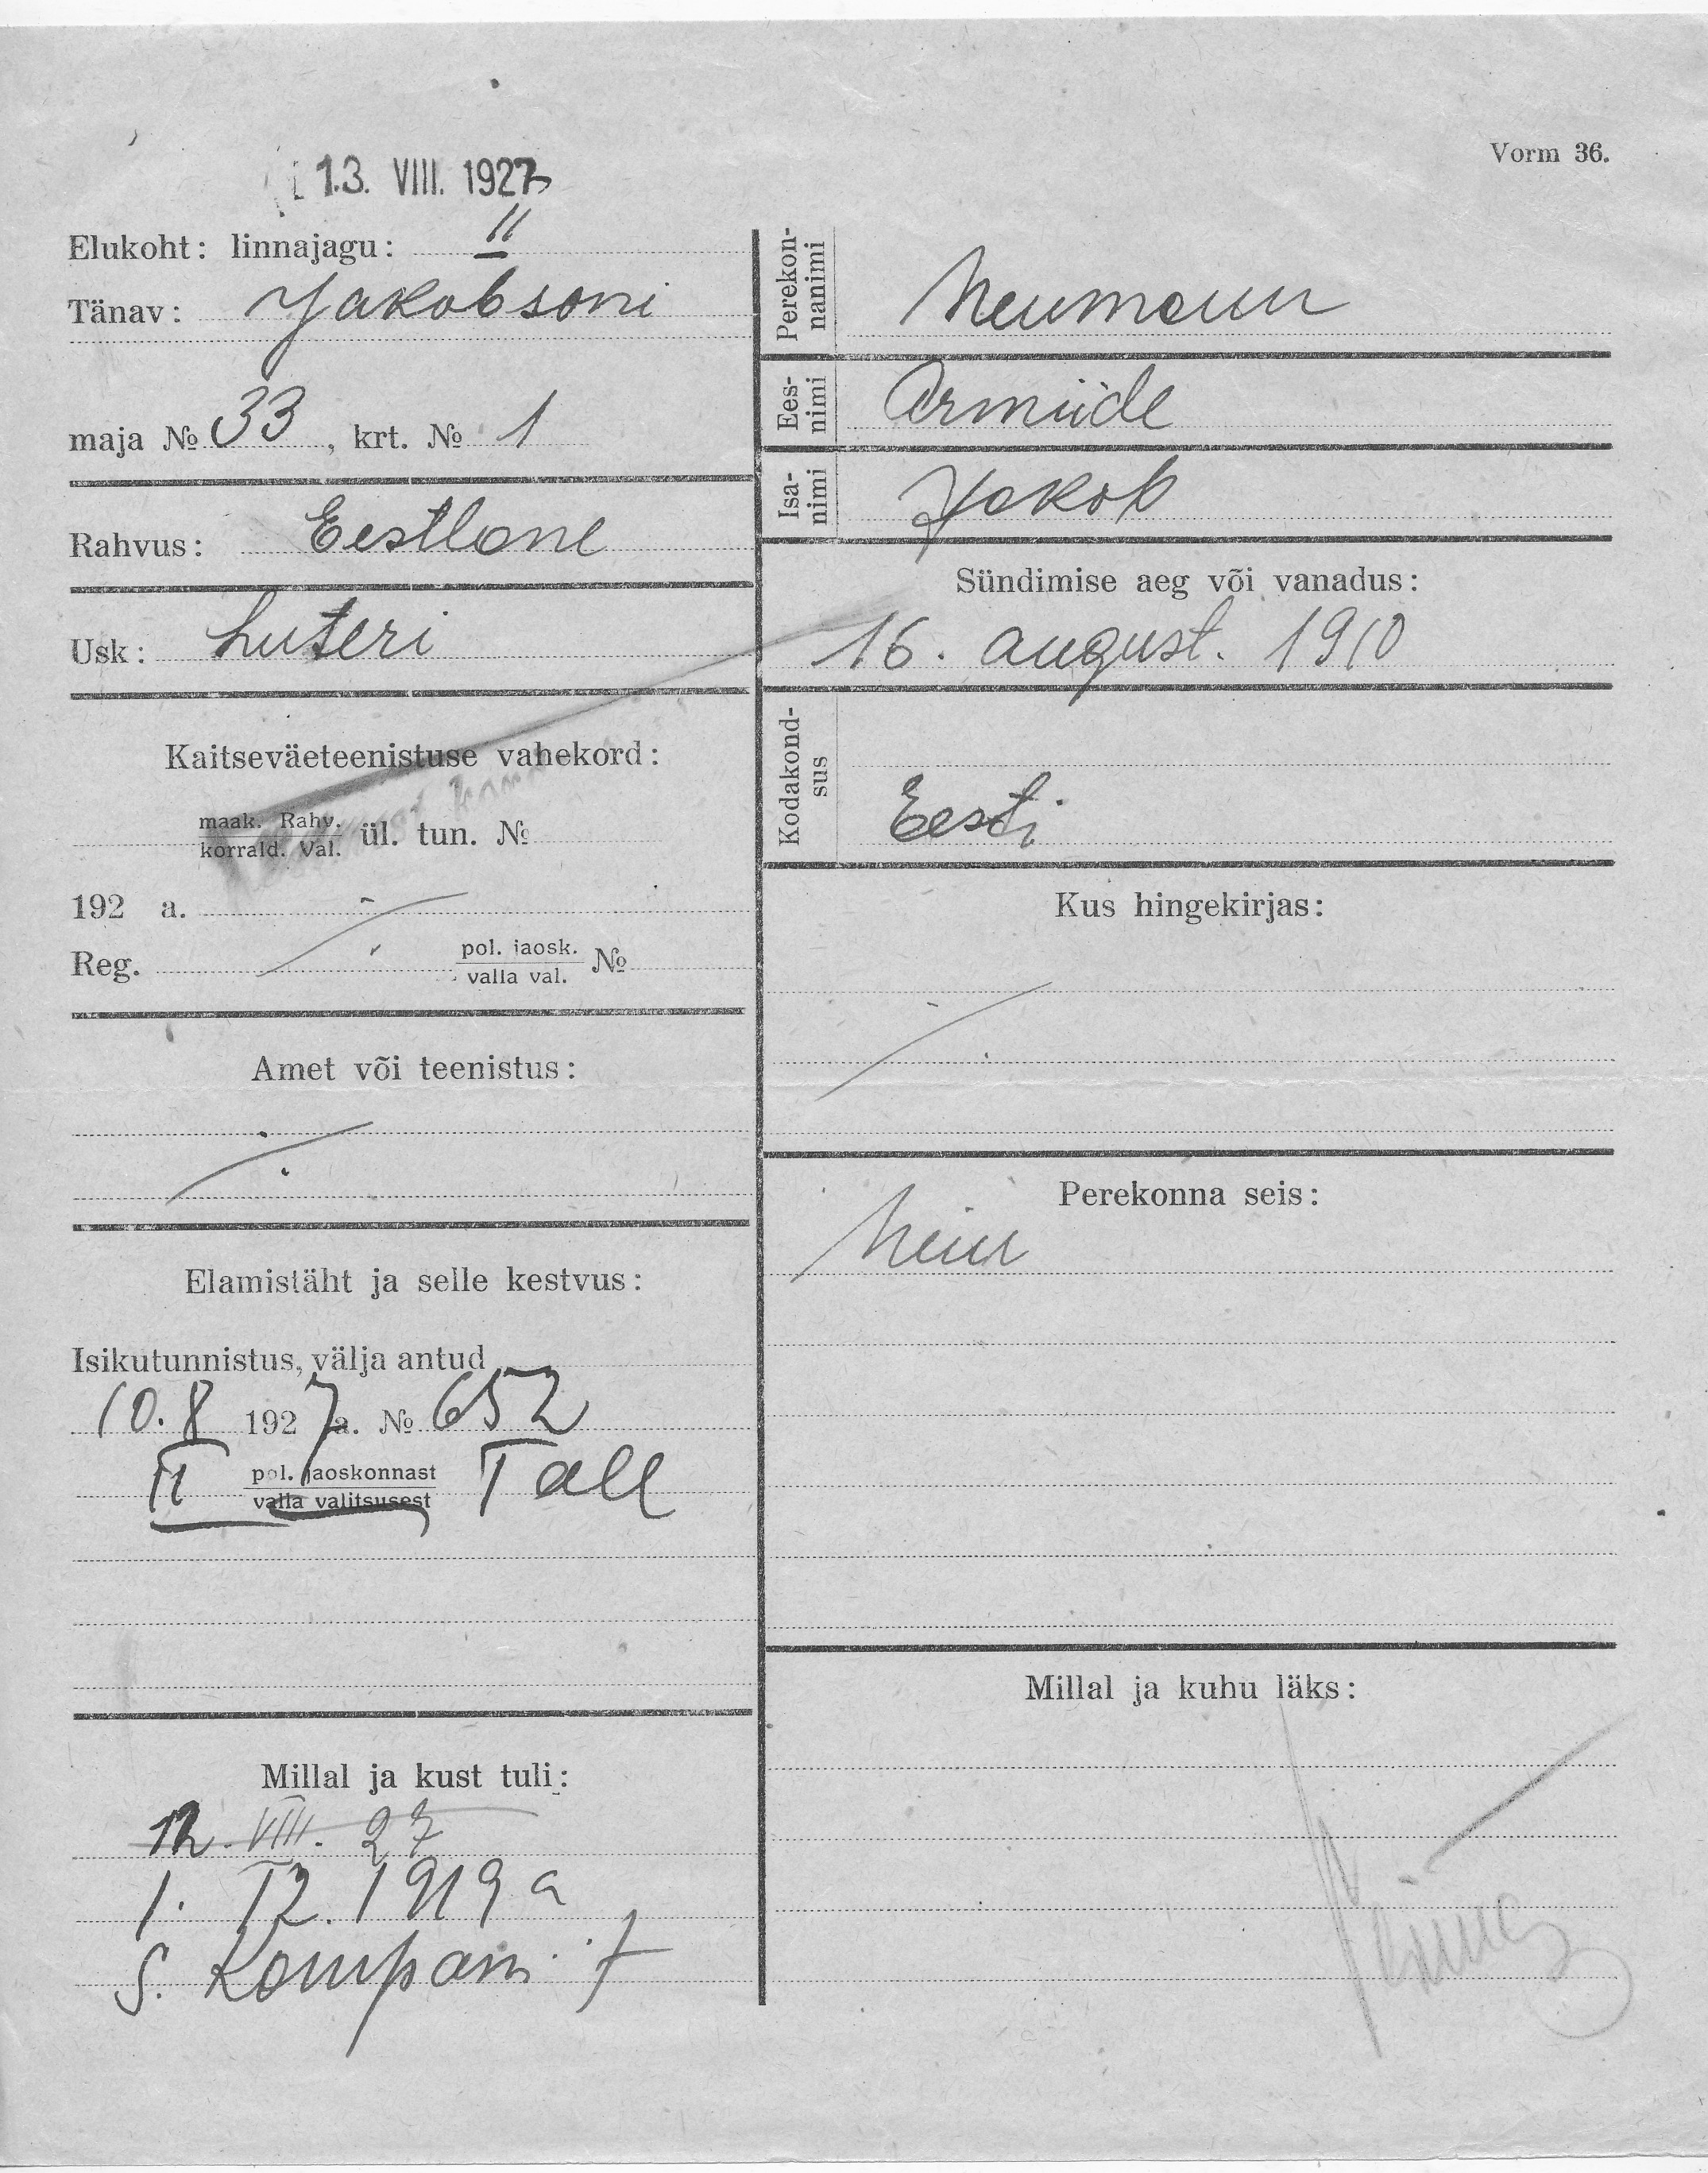 Vorm 36.
13. VIII. 1927
Elukoht: linnajagu: II
Tänav: Jakobsoni
maja № 33, krt. № 1
Rahvus: Eestlane
Usk: Luteri
Kaitseväeteenistuse vahekord:
maak. Rahv.
korrald. Val. ül. tun. №
192 a.
Reg. pol. jaosk.
valla val. №
Amet või teenistus:
Elamistäht ja selle kestvus:
Isikutunnistus, välja antud
10.8 1927 a. № 652
II pol. jaoskonnast Tall
valla valitsusest
Millal ja kust tuli:
12. VIII. 27
1. IX. 1919 a
S. Kompani
Perekon-
nanimi Neumann
Ees-
nimi Armiide
Isa-
nimi Jakob
Sündimise aeg või vanadus:
16. august. 1910
Kodakond-
sus Eesti
Kus hingekirjas:
Perekonna seis:
Neiu
Millal ja kuhu läks: